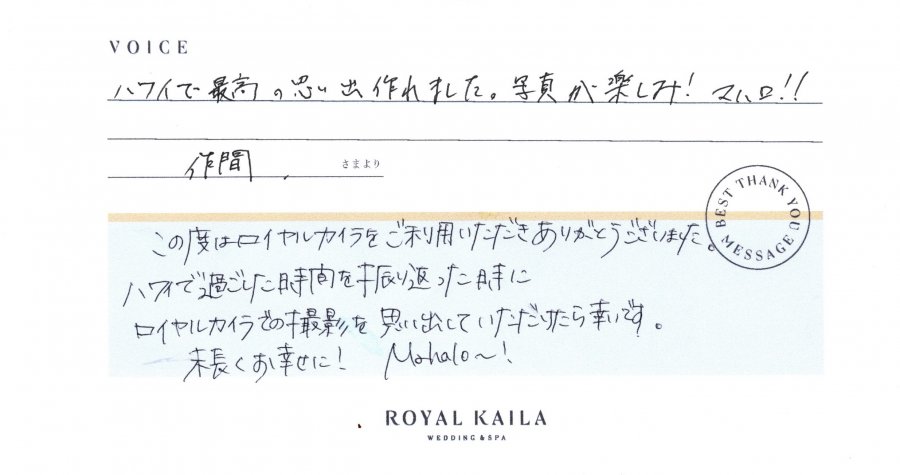 VOICE
ハワイで最高の思い出作れました。写真が楽しみ! マハロ!!
作間
さまより
BEST THANK YOU MESSAGE
この度はロイヤルカイラをご利用いただきありがとうございました。
ハワイで過ごした時間を振り返った時に
ロイヤルカイラでの撮影を思い出していただけたら幸いです。
末長くお幸せに! Mahalo〜!
ROYAL KAILA
WEDDING & SPA